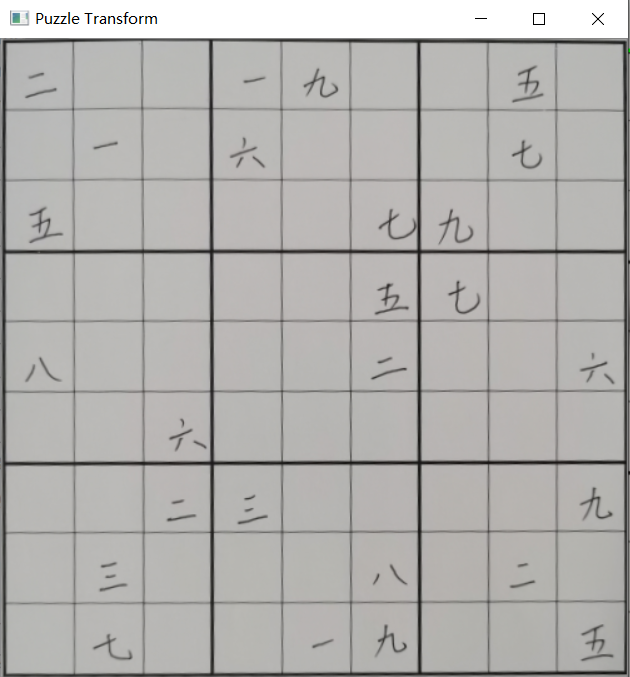 Puzzle Transform
二 一 九 五
一 六 七
五 七 九
五 七
八 二 六
六
二 三 九
三 八 二
七 一 九 五